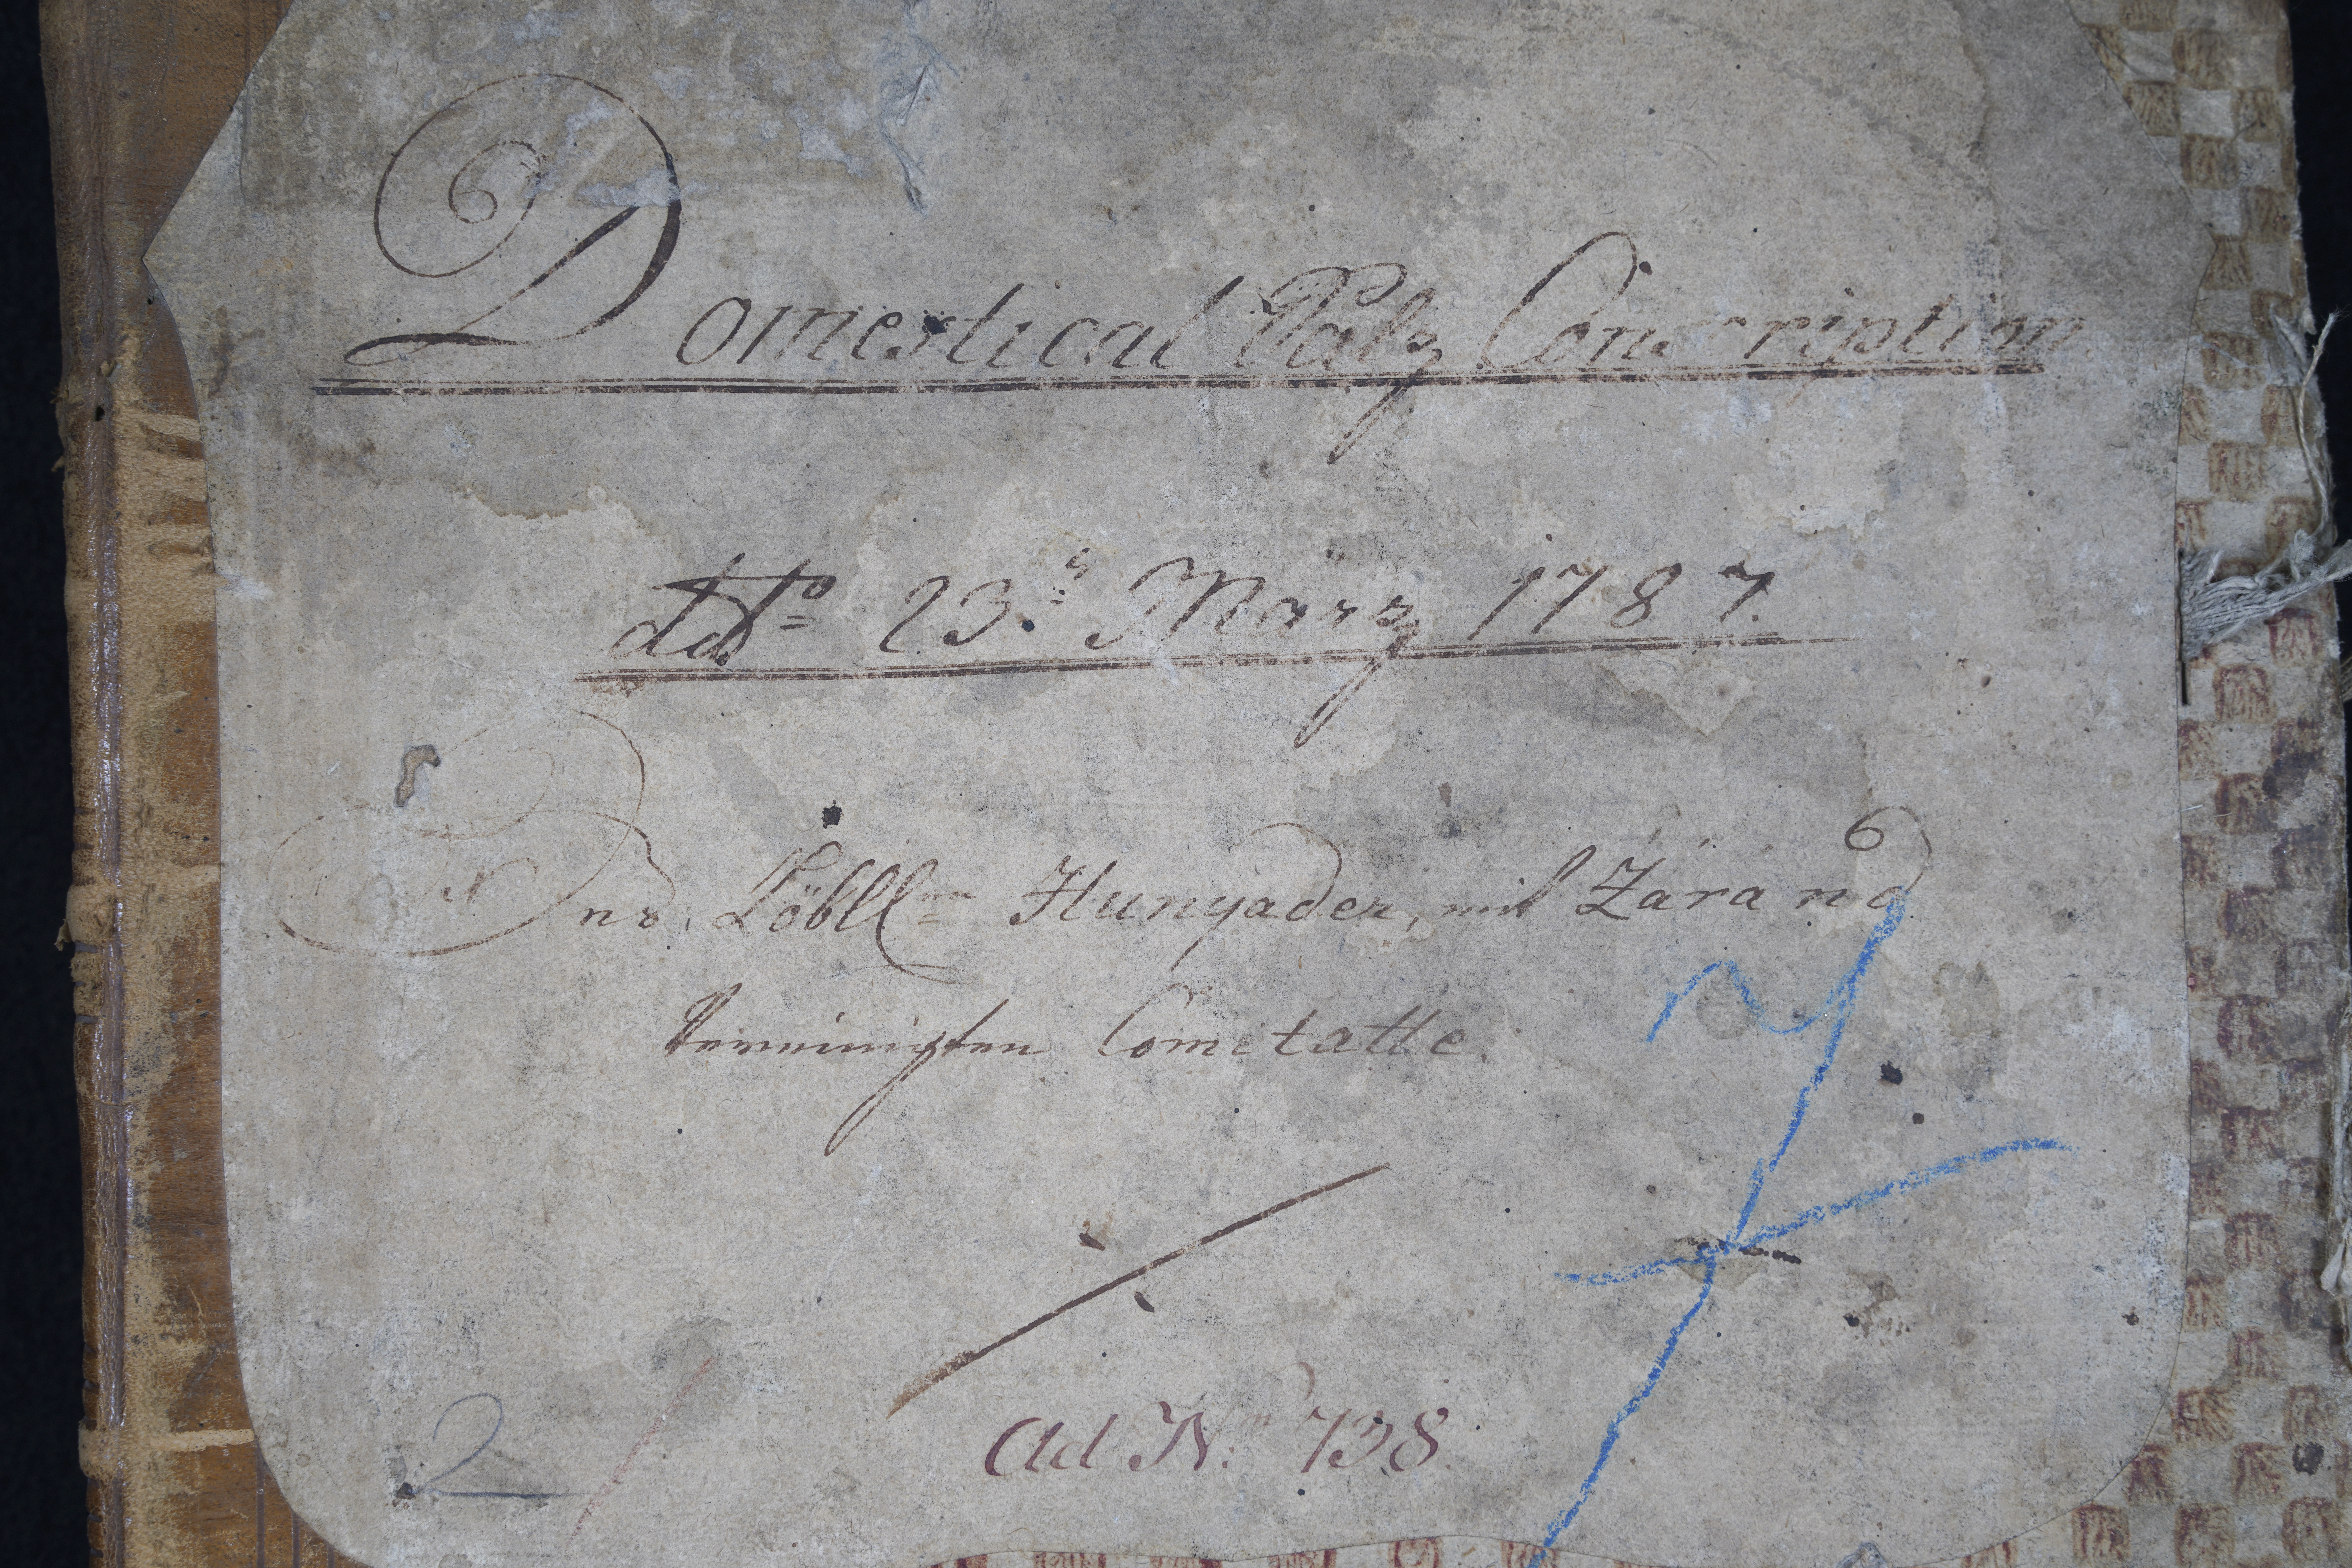 Domestical Salz Conscription
ddto 23t März 1787.
Löbll:en Hunyader, mit Zárand
Vereinigten Comitatte.
Ad Nr: 738
2